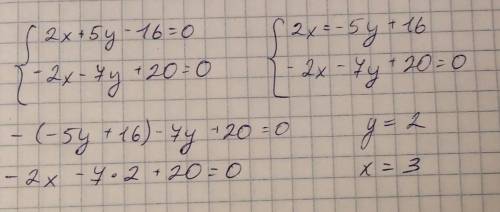 2x+5y-16=0
-2x-7y+20=0
2x=-5y+16
-2x-7y+20=0
-(-5y+16)-7y+20=0
y=2
-2x-7·2+20=0
x=3